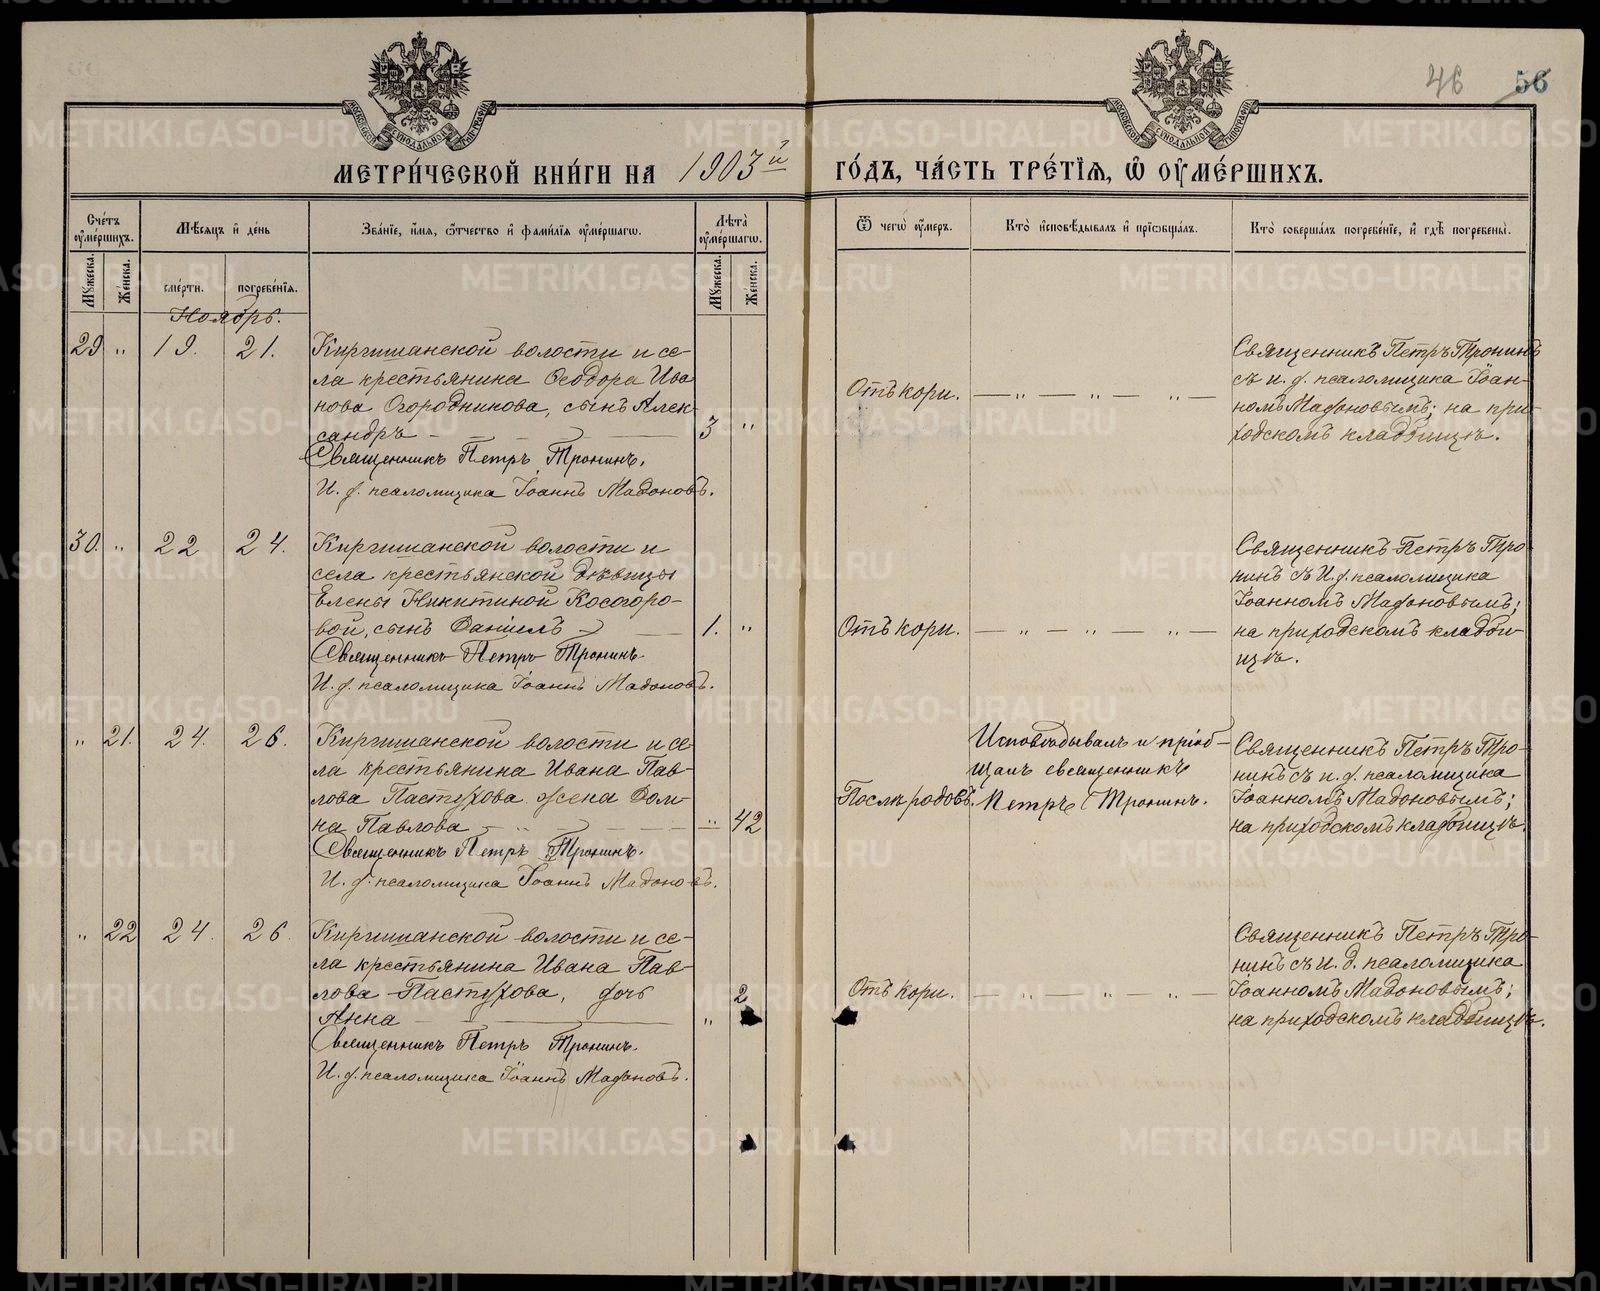 46 56
МЕТРИ́ЧЕСКОЙ КНИ́ГИ НА 1903й ГО́ДЪ, ЧА́СТЬ ТРЕ́ТІѦ, Ѽ ОУ҆МЕ́РШИХЪ.
Сче́тъ оу҆ме́ршихъ.
Мꙋжеска. Же́нска.
Мѣ́сяцъ и҆ де́нь
сме́рти. погребе́нія.
Зва́ніе, и҆́мя, ѻ҆́тчество и҆ фами́лія оу҆ме́ршагѡ.
Лѣ́та оу҆ме́ршагѡ.
Мꙋжеска. Же́нска.
Ѿ чегѡ̀ оу҆́меръ.
Кто̀ и҆сповѣ́дывалъ и҆ прїѡбща́лъ.
Кто̀ соверша́лъ погребе́ніе, и҆ гдѣ̀ погребены̀.
Ноябрь.
29 „ 19. 21.
Киргишанской волости и се-
ла крестьянина Ѳеодора Ива
нова Огородникова, сынъ Алек-
сандръ
3 „
Священникъ Петръ Тронинъ.
И. д. псаломщика Іоаннъ Мадоновъ.
Отъ кори. — „ — „ — „ —
Священникъ Петръ Тронинъ
съ и. д. псаломщика Іоан-
номъ Мадоновымъ; на при-
ходскомъ кладбищѣ.
30. „ 22 24.
Киргишанской волости и
села крестьянской дѣвицы
Елены Никитиной Косогоро-
вой, сынъ Даніилъ
1. „
Священникъ Петръ Тронинъ
И. д. псаломщика Іоаннъ Мадоновъ.
Отъ кори. — „ — „ — „ —
Священникъ Петръ Тро-
нинъ съ И. д. псаломщика
Іоанномъ Мадоновымъ;
на приходскомъ кладби-
щѣ.
„ 21. 24. 26.
Киргишанской волости и се
ла крестьянина Ивана Пав-
лова Пастухова жена Дом-
на Павлова
„ 42
Священникъ Петръ Тронинъ.
И. д. псаломщика Іоаннъ Мадоновъ.
Послѣ родовъ.
Исповѣдывалъ и пріоб-
щалъ священникъ
Петръ Тронинъ.
Священникъ Петръ Тро-
нинъ съ и. д. псаломщика
Іоанномъ Мадоновымъ;
на приходскомъ кладбищѣ.
„ 22 24. 26.
Киргишанской волости и се-
ла крестьянина Ивана Пав-
лова Пастухова, дочь
Анна
„ 2
Священникъ Петръ Тронинъ.
И. д. псаломщика Іоаннъ Мадоновъ.
Отъ кори. — „ — „ — „ —
Священникъ Петръ Тро-
нинъ съ И. д. псаломщика
Іоанномъ Мадоновымъ;
на приходскомъ кладбищѣ.
METRIKI.GASO-URAL.RU